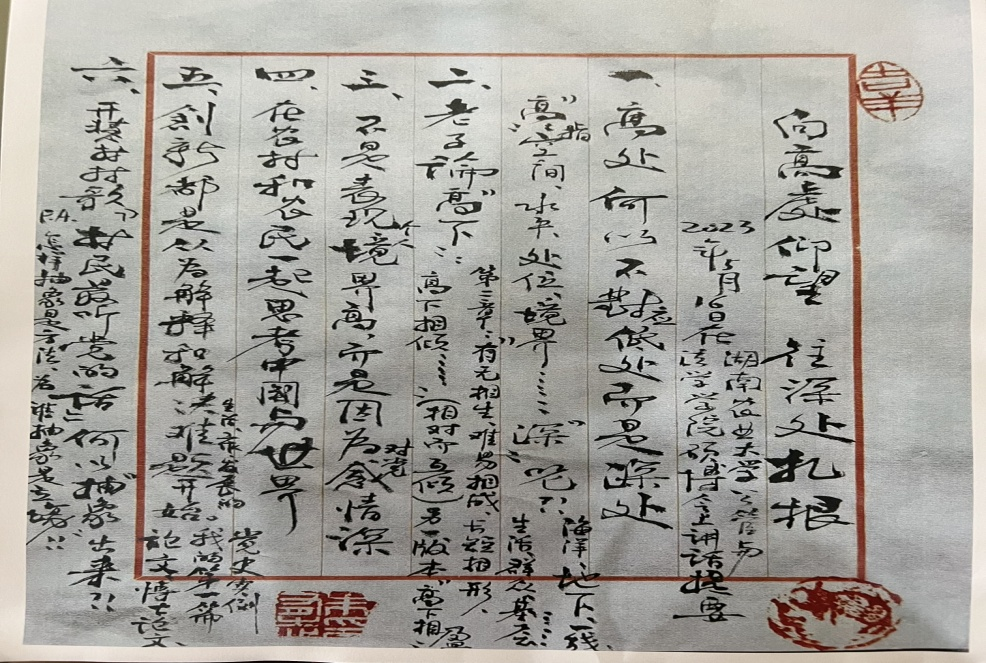 向高处仰望 往深处扎根
2023年5月16日在湖南农业大学公管与
法学学院硕博会上讲话提要
一、高处何以不对应低处而是深处
"高"指空间、水平、处位、境界……"深"呢？：海洋、地下、一线、
生活、群众、基层……
二、老子论"高下"：
第二章："有无相生，难易相成，长短相形，
高下相倾……"（相对而互倾）另一版本"高下相盈"
三、不是表现个人境界高，而是因为对党感情深
四、在农村和农民一起思考中国与世界
五、创新都是以为解释和解决生活、前台的难题开始。
党史实例
我的第一篇
论文 博士论文
六、开奖村村歌"村民最听党的话"何以"抽象"出来？！
P.4. 怎样抽象是方法，为谁抽象是立场！！
吉羊